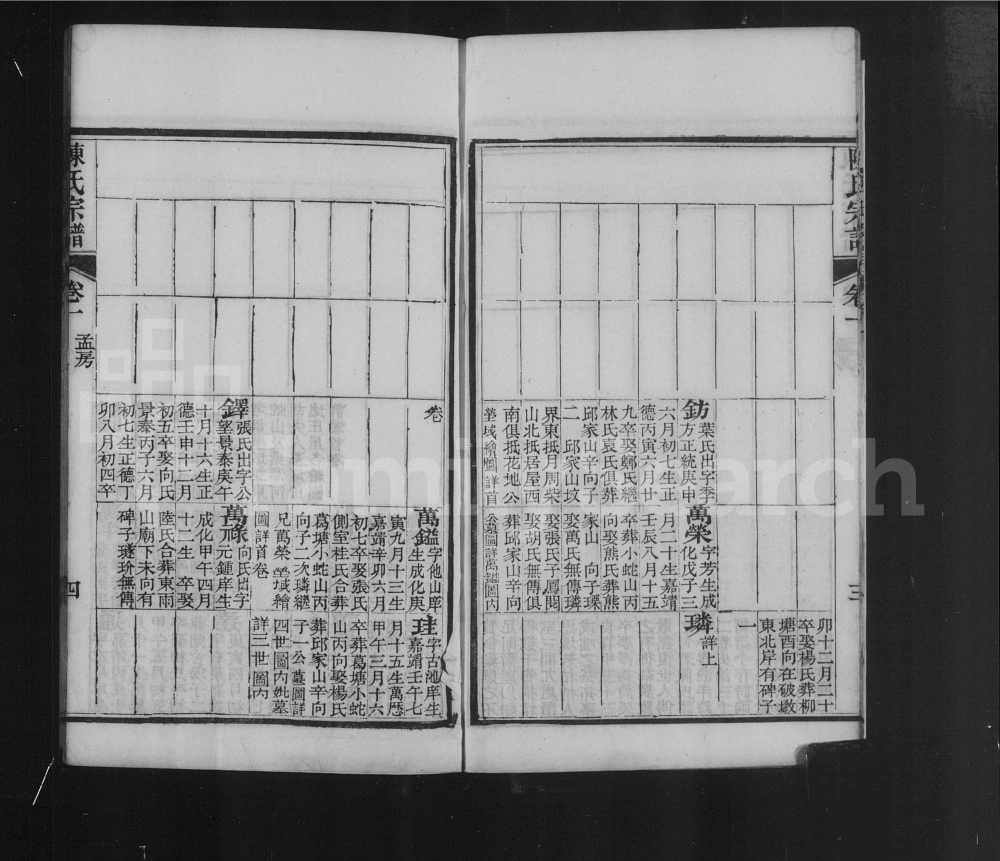 陳氏宗譜
卷一
三
卯十二月二十
卒娶楊氏葬柳
塘酉向在破墩
東北岸有碑子
一
鈁
葉氏出字季
方正統庚申
六月初七生正
德丙寅六月廿
九卒娶鄭氏繼
林氏袁氏俱葬
邱家山辛向子
二 邱家山坟
界東抵月周柴
山北抵居屋西
南俱抵花地公
塋域繪圖詳首
萬榮
字芳生成
化戊子三
月二十生嘉靖
壬辰八月十五
卒葬小蛇山丙
向娶熊氏葬熊
家山 向子璖
娶萬氏無傳璘
娶張氏子鳳閱
娶胡氏無傳俱
葬邱家山辛向
公墓圖詳萬鎰圖內
璘
詳上
卷
萬鎰
字他山庠
生成化庚
寅九月十三生
嘉靖辛卯六月
初七卒娶張氏
側室桂氏合葬
葛塘小蛇山丙
向子二次璘繼
兄萬榮 塋域繪
圖詳首卷
珪
字古池庠生
嘉靖壬午七
月十五生萬曆
甲午三月十六
卒葬葛塘小蛇
山丙向娶楊氏
葬邱家山辛向
子一公墓圖詳
四世圖內妣墓
詳三世圖內
鐸
張氏出字公
金望景泰庚午
十月十六生正
德壬申十二月
初五卒娶向氏
景泰丙子六月
初七生正德丁
卯八月初四卒
萬祿
向氏出字
元鍾庠生
成化甲午四月
十二生 卒娶
陸氏合葬東雨
山廟下未向有
碑子璲玠無傳
陳氏宗譜
卷一
孟房
四